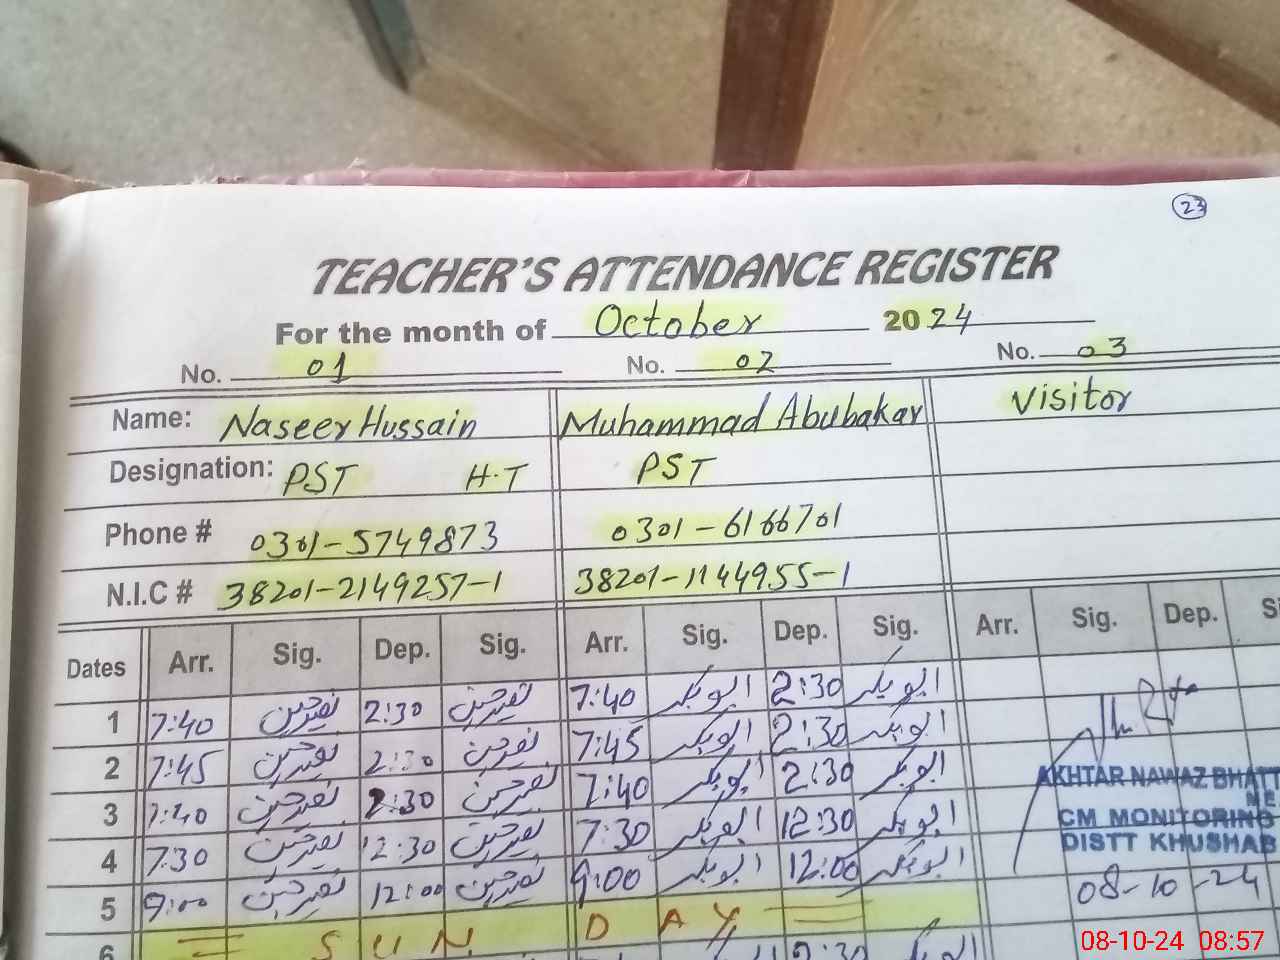 23
TEACHER'S ATTENDANCE REGISTER
For the month of October 2024
No. 01 No. 02 No. 03
Name: Naseer Hussain Muhammad Abubakar Visitor
Designation: PST H.T PST
Phone # 0301-5749873 0301-6166701
N.I.C # 38201-2149257-1 38201-1144955-1
Dates Arr. Sig. Dep. Sig. Arr. Sig. Dep. Sig. Arr. Sig. Dep.
1 7:40 نصیر حسین 2:30 نصیر حسین 7:40 ابوبکر 2:30 ابوبکر
2 7:45 نصیر حسین 2:30 نصیر حسین 7:45 ابوبکر 2:30 ابوبکر
3 7:40 نصیر حسین 2:30 نصیر حسین 7:40 ابوبکر 2:30 ابوبکر
4 7:30 نصیر حسین 12:30 نصیر حسین 7:30 ابوبکر 12:30 ابوبکر
5 9:00 نصیر حسین 12:00 نصیر حسین 9:00 ابوبکر 12:00 ابوبکر
6 SUN DAY
2:30
AKHTAR NAWAZ BHATT
ME
CM MONITORING
DISTT KHUSHAB
08-10-24
08-10-24 08:57